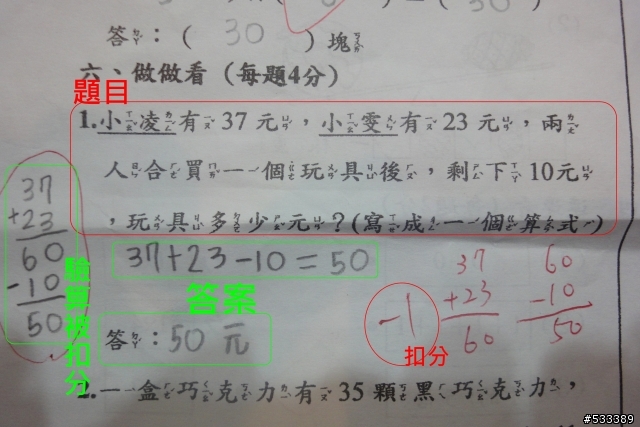 30
答：( 30 )塊
六、做做看（每題4分）
題目
1.小凌有37元，小雯有23元，兩
人合買一個玩具後，剩下10元
，玩具多少元？(寫成一個算式)
37
+23
60
-10
50
驗算被扣分
37+23-10=50
答案
答：50元
-1
扣分
37
+23
60
60
-10
50
2.一盒巧克力有35顆黑巧克力，
#533389